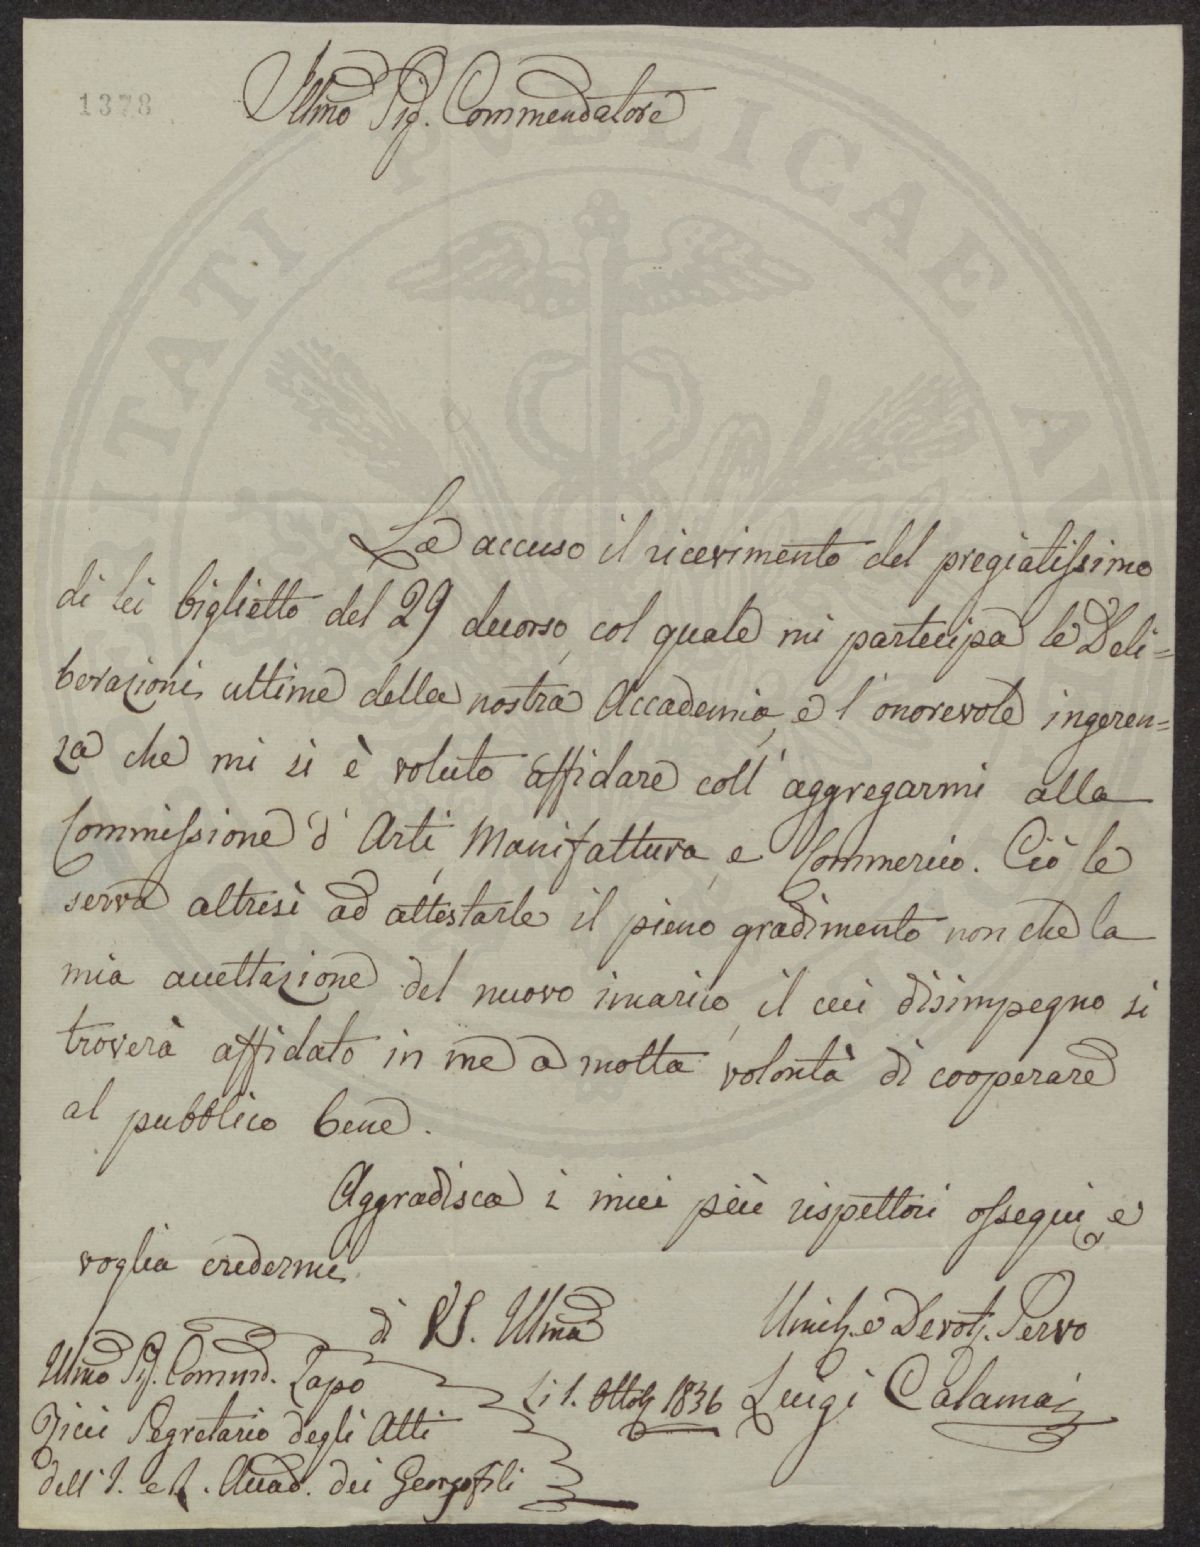 1378
Illmo Sig. Commendatore
Le accuso il ricevimento del pregiatissimo
di lei biglietto del 29 decorso, col quale mi partecipa le Deli=
berazioni ultime della nostra Accademia, e l'onorevole ingeren=
za che mi si è voluto affidare coll'aggregarmi alla
Commissione d'Arti, Manifattura, e Commercio. Ciò le
serva altresì ad attestarle il pieno gradimento non che la
mia accettazione del nuovo incarico, il cui disimpegno si
troverà affidato in me a molta volontà di cooperare
al pubblico bene.
Aggradisca i miei più rispettosi ossequi, e
voglia credermi
di V.S. Illma
Umil. e Devot. Servo
Illmo Sig. Commend. Tapo
Li 1. Ottob. 1836 Luigi Calamai
Vice Segretario degli Atti
dell'I. e R. Accad. dei Georgofili
UTILITATI PUBLICAE